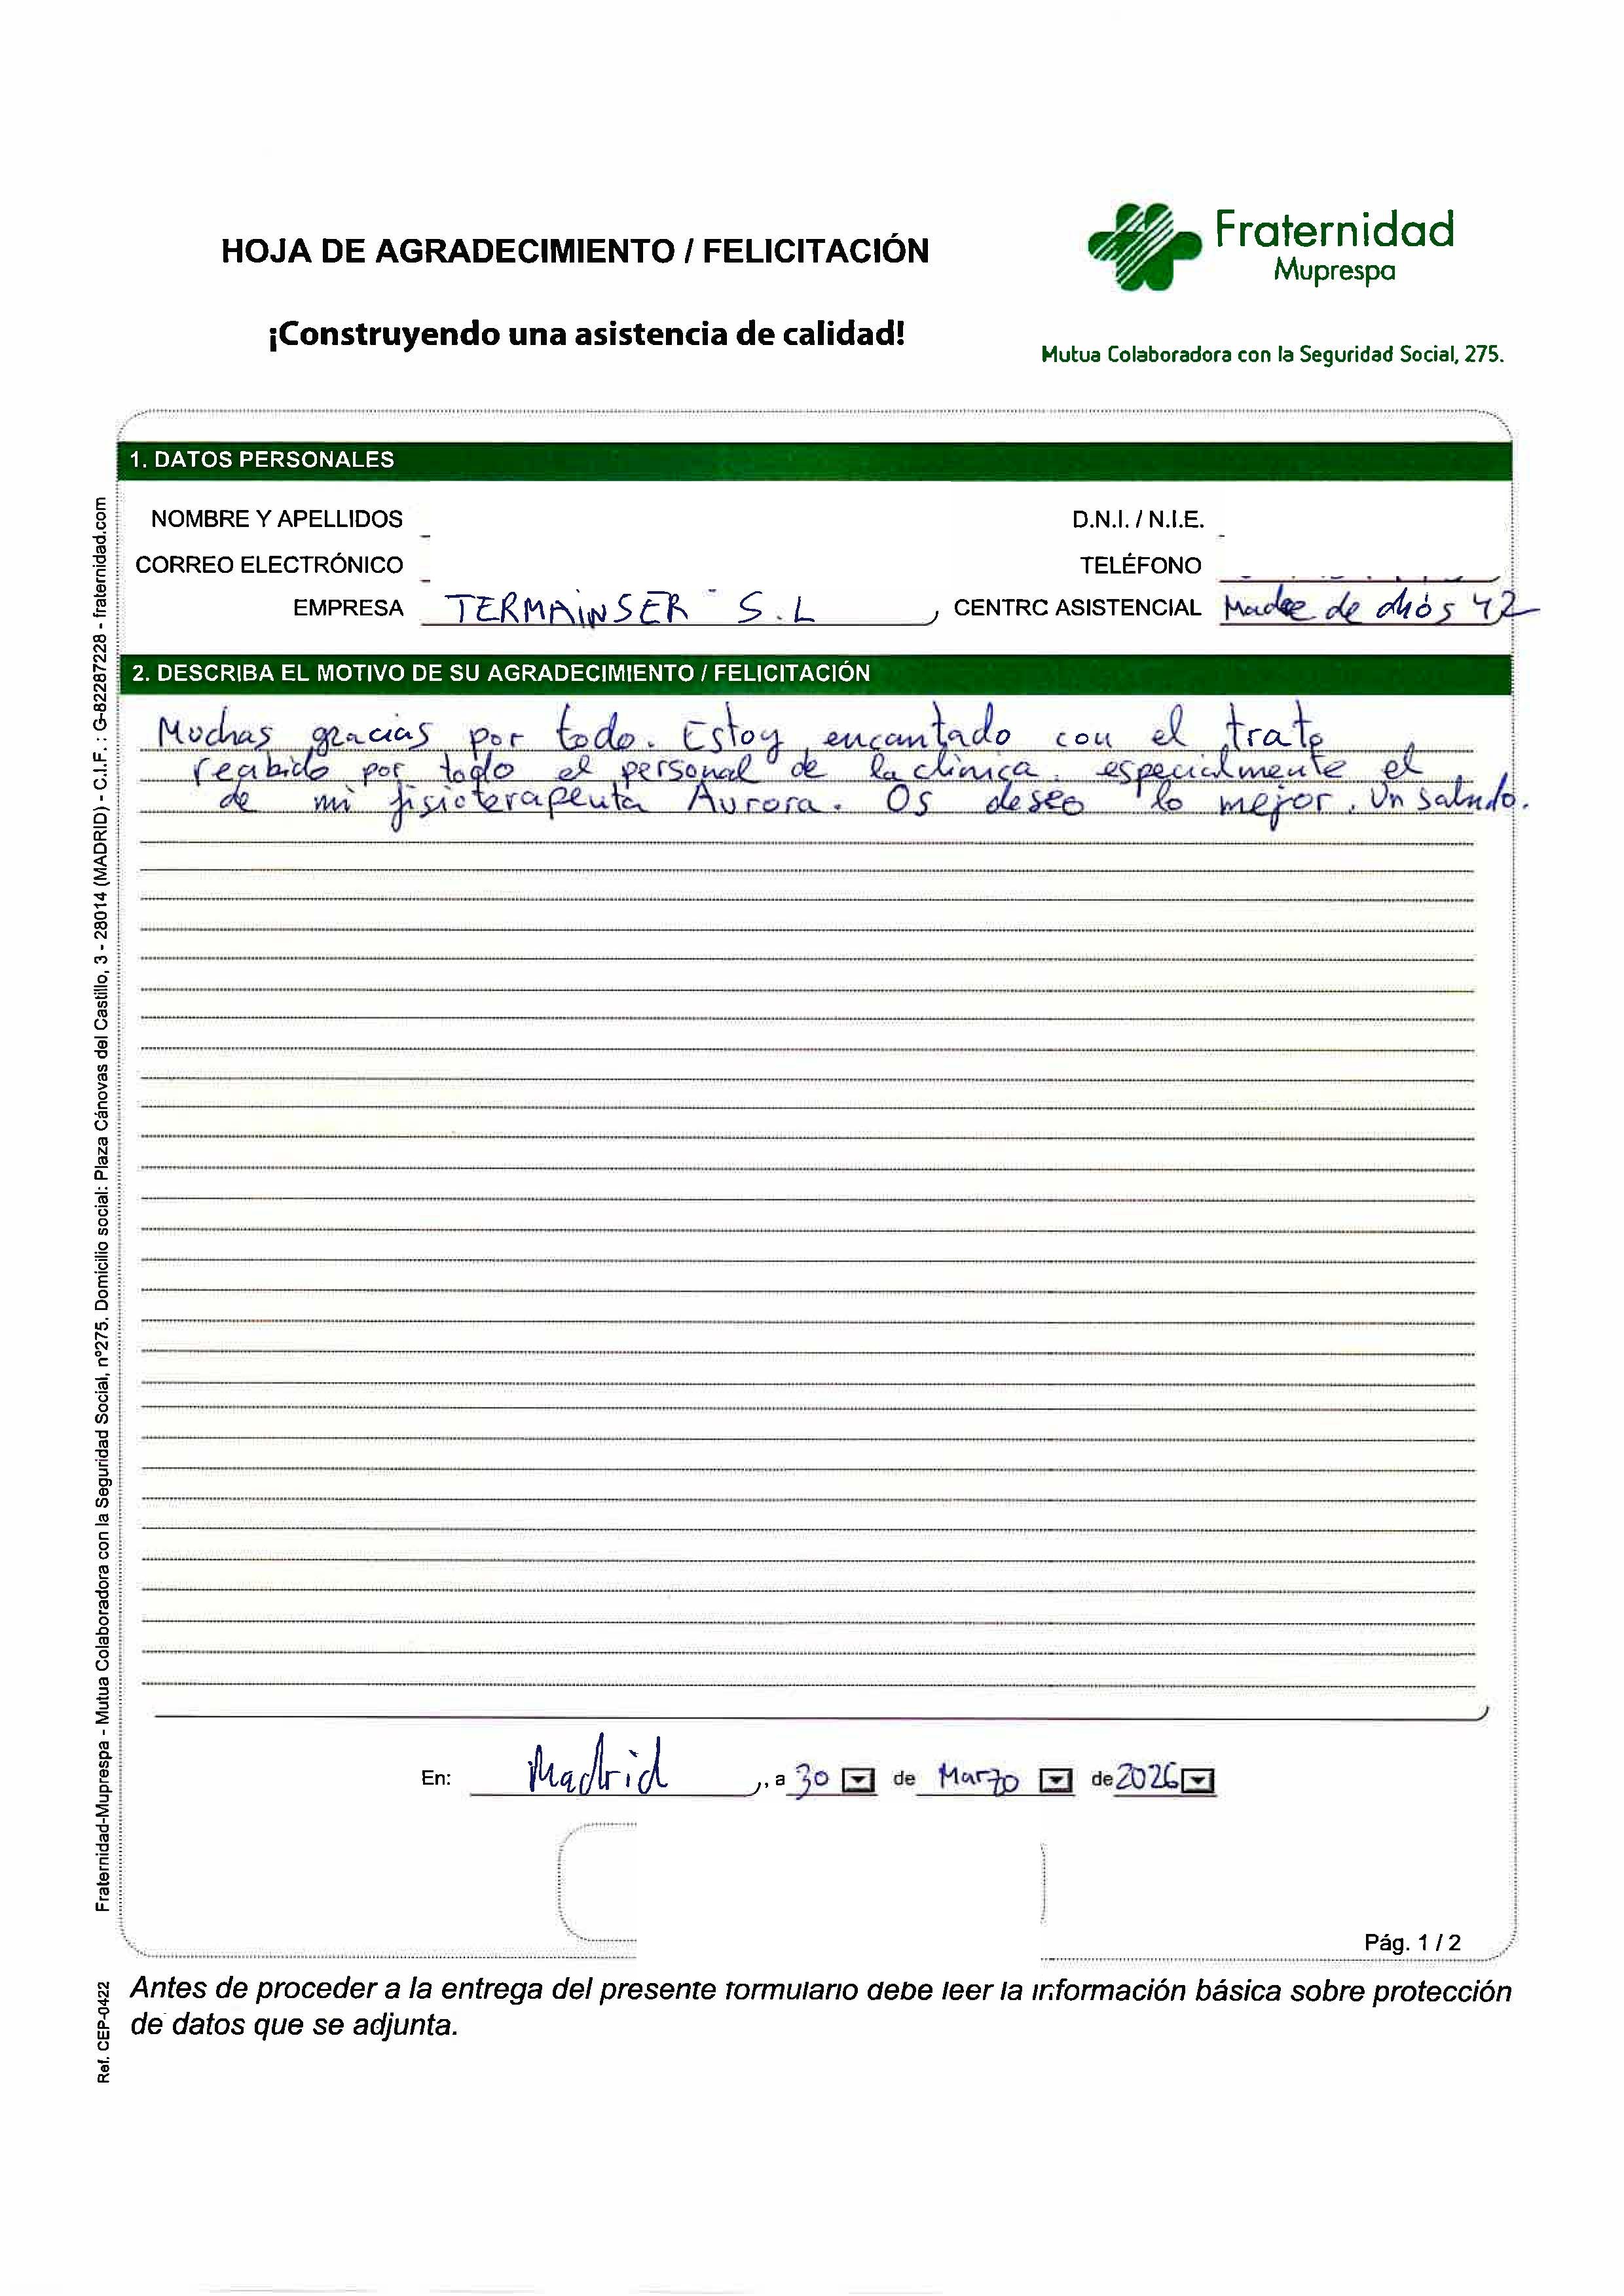 HOJA DE AGRADECIMIENTO / FELICITACIÓN
¡Construyendo una asistencia de calidad!
Fraternidad
Muprespa
Mutua Colaboradora con la Seguridad Social, 275.
1. DATOS PERSONALES
NOMBRE Y APELLIDOS
D.N.I. / N.I.E.
CORREO ELECTRÓNICO
TELÉFONO
EMPRESA TERMAINSER S.L
CENTRC ASISTENCIAL Madre de diós 42
2. DESCRIBA EL MOTIVO DE SU AGRADECIMIENTO / FELICITACIÓN
Muchas gracias por todo. Estoy encantado con el trato
recibido por todo el personal de la clinica. especialmente el
de mi fisioterapeuta Aurora. Os deseo lo mejor. Un saludo.
En: Madrid, a 30 de Marzo de 2026
Pág. 1 / 2
Antes de proceder a la entrega del presente formulario debe leer la información básica sobre protección
de datos que se adjunta.
Fraternidad-Muprespa - Mutua Colaboradora con la Seguridad Social, nº275. Domicilio social: Plaza Cánovas del Castillo, 3 - 28014 (MADRID) - C.I.F. : G-82287228 - fraternidad.com
Ref. CEP-0422